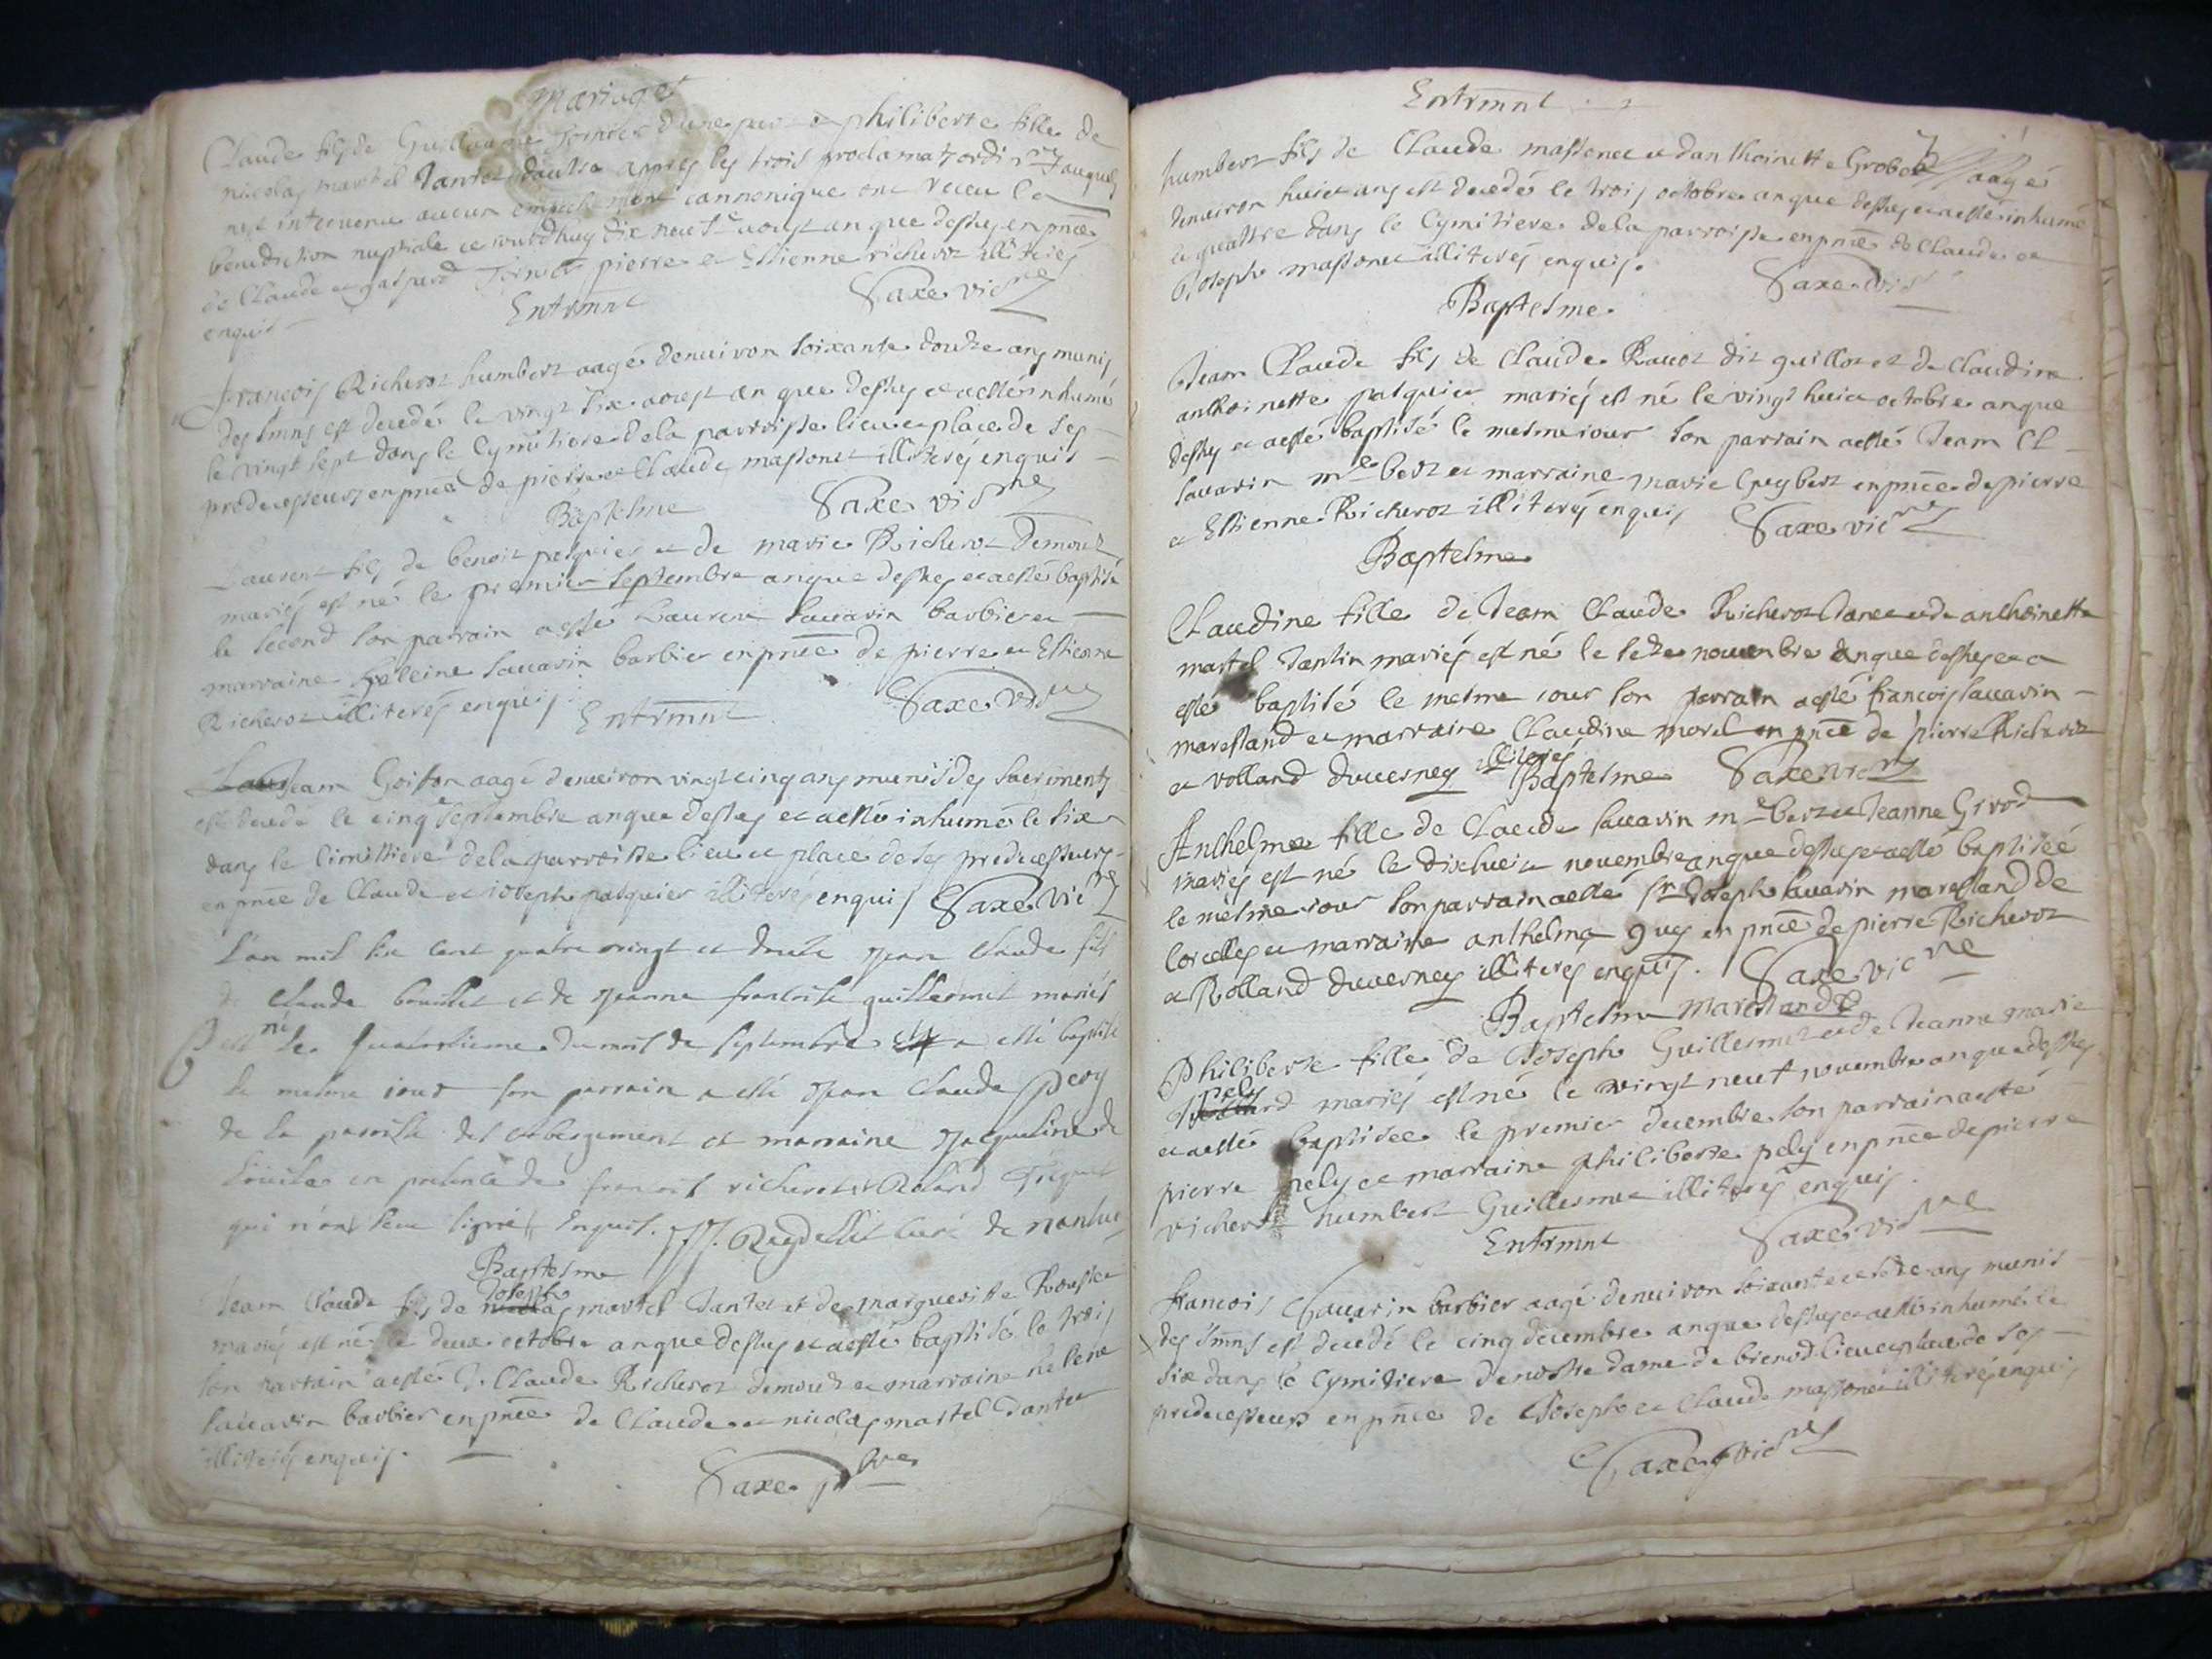 Mariage
Claude fils de Guillaume d'une part et philiberte fille de
nicolas martel Tantet d'autre apprez les trois proclamaõ ordi.res auquel
nest intrevenu aucun empechement cannonique ont receu la
benediction nuptiale ce jourdhuy dix neuf.e aoust an que dessus en pñce
de Claude et gaspard pierre et Estienne richerot illiterés
enquis Saxe vic.re
Entrmnt
francois Richerot humbert aagé denuiron soixante douze ans munis
des smns est decedé le vingt six aoust an que dessus et a esté inhumé
le vingt sept dans le Cymitiere de la parroisse lieu et place de ses
predecesseurs en pñce de pierre et Claude massonet illiterés enquis
Saxe vic.re
Baptesme
Laurent fils de benoit pasquier et de marie Richerot Demouz
mariés est né le premier septembre an que dessus et a esté baptisé
le second son parrain a esté Laurent sauarin barbier et
marraine heleine sauarin barbier en pñce de pierre et Estienne
Richerot illiterés enquis Saxe vic.re
Entrmnt
Jean Goiffon aagé denuiron vingt cinq ans munis des sacrements
est decedé le cinq septembre an que dessus et a esté inhumé le six
dans le Cimittiere de la parroisse lieu et place de ses predecesseurs
en pñce de Claude et ioseph pasquier illiterés enquis Saxe vic.re
L'an mil six cent quatre vingt et douze Jean Claude fils
de Claude bouillet et de Jeanne francoise guillermet mariés
est né le quatorzieme du mois de septembre a esté baptisé
le mesme iour son parrain a esté Jean Claude pery
de la paroisse de l'abergement et marraine Jacqueline de
en presence de francois richerot et Roland
qui n'ont seu signé enquis. Reydellet curé de nantua
Baptesme
Jean Claude fils de Joseph martel Tantet et de marguerite
mariés est né le deux octobre an que dessus et a esté baptisé le trois
son parrain a esté J. Claude Richerot demouz et marraine helene
sauarin barbier en pñce de Claude et nicolas martel Tantet
illiterés enquis.
Saxe p.bre
Entrmnt
humbert fils de Claude massonet et danthoinette Grobet aagé
denuiron huict ans est decedé le trois octobre an que dessus et a esté inhumé
le quattre dans le Cymitiere de la parroisse en pñce de Claude et
Joseph massonet illiterés enquis. Saxe vic.re
Baptesme
Jean Claude fils de Claude Rauot dit guillot et de Claudine
anthoinette pasquier mariés est né le vingt huict octobre an que
dessus et a esté baptisé le mesme iour son parrain a esté Jean Cl
sauarin m.e bert et marraine marie en pñce de pierre
et Estienne Richerot illiterés enquis Saxe vic.re
Baptesme
Claudine fille de Jean Claude Richerot et de anthoinette
martel Tantin mariés est né le seze nouembre an que dessus et a
esté baptisé le mesme iour son parrain a esté francois sauarin
marchand et marraine Claudine morel en pñce de pierre Richerot
et Rolland duuerney illiterés Saxe vic.re
Baptesme
Anthelmee fille de Claude sauarin m.e bert et Jeanne Girod
mariés est né le dixhuict nouembre an que dessus et a esté baptiseé
le mesme iour son parrain a esté s.r Joseph sauarin marchand de
lorcelles et marraine anthelma en pñce de pierre Richerot
et Rolland duuerney illiterés enquis. Saxe vic.re
Baptesme
marchand
Philiberte fille de Joseph Guillermet et de Jeanne marie
pely mariés est né le vingt neuf nouembre an que dessus
et a esté baptiseé le premier decembre son parrain a esté
pierre pely et marraine philiberte pely en pñce de pierre
richerot humbert Guillermet illiterés enquis.
Saxe vic.re
Entrmnt
francois sauarin barbier aagé denuiron soixante et seze ans munis
des smns est decedé le cinq decembre an que dessus et a esté inhumé le
six dans le Cymitiere de nostre dame de brenod lieu et place de ses
predecesseurs en pñce de Joseph et Claude massonet illiterés enquis
Saxe vic.re